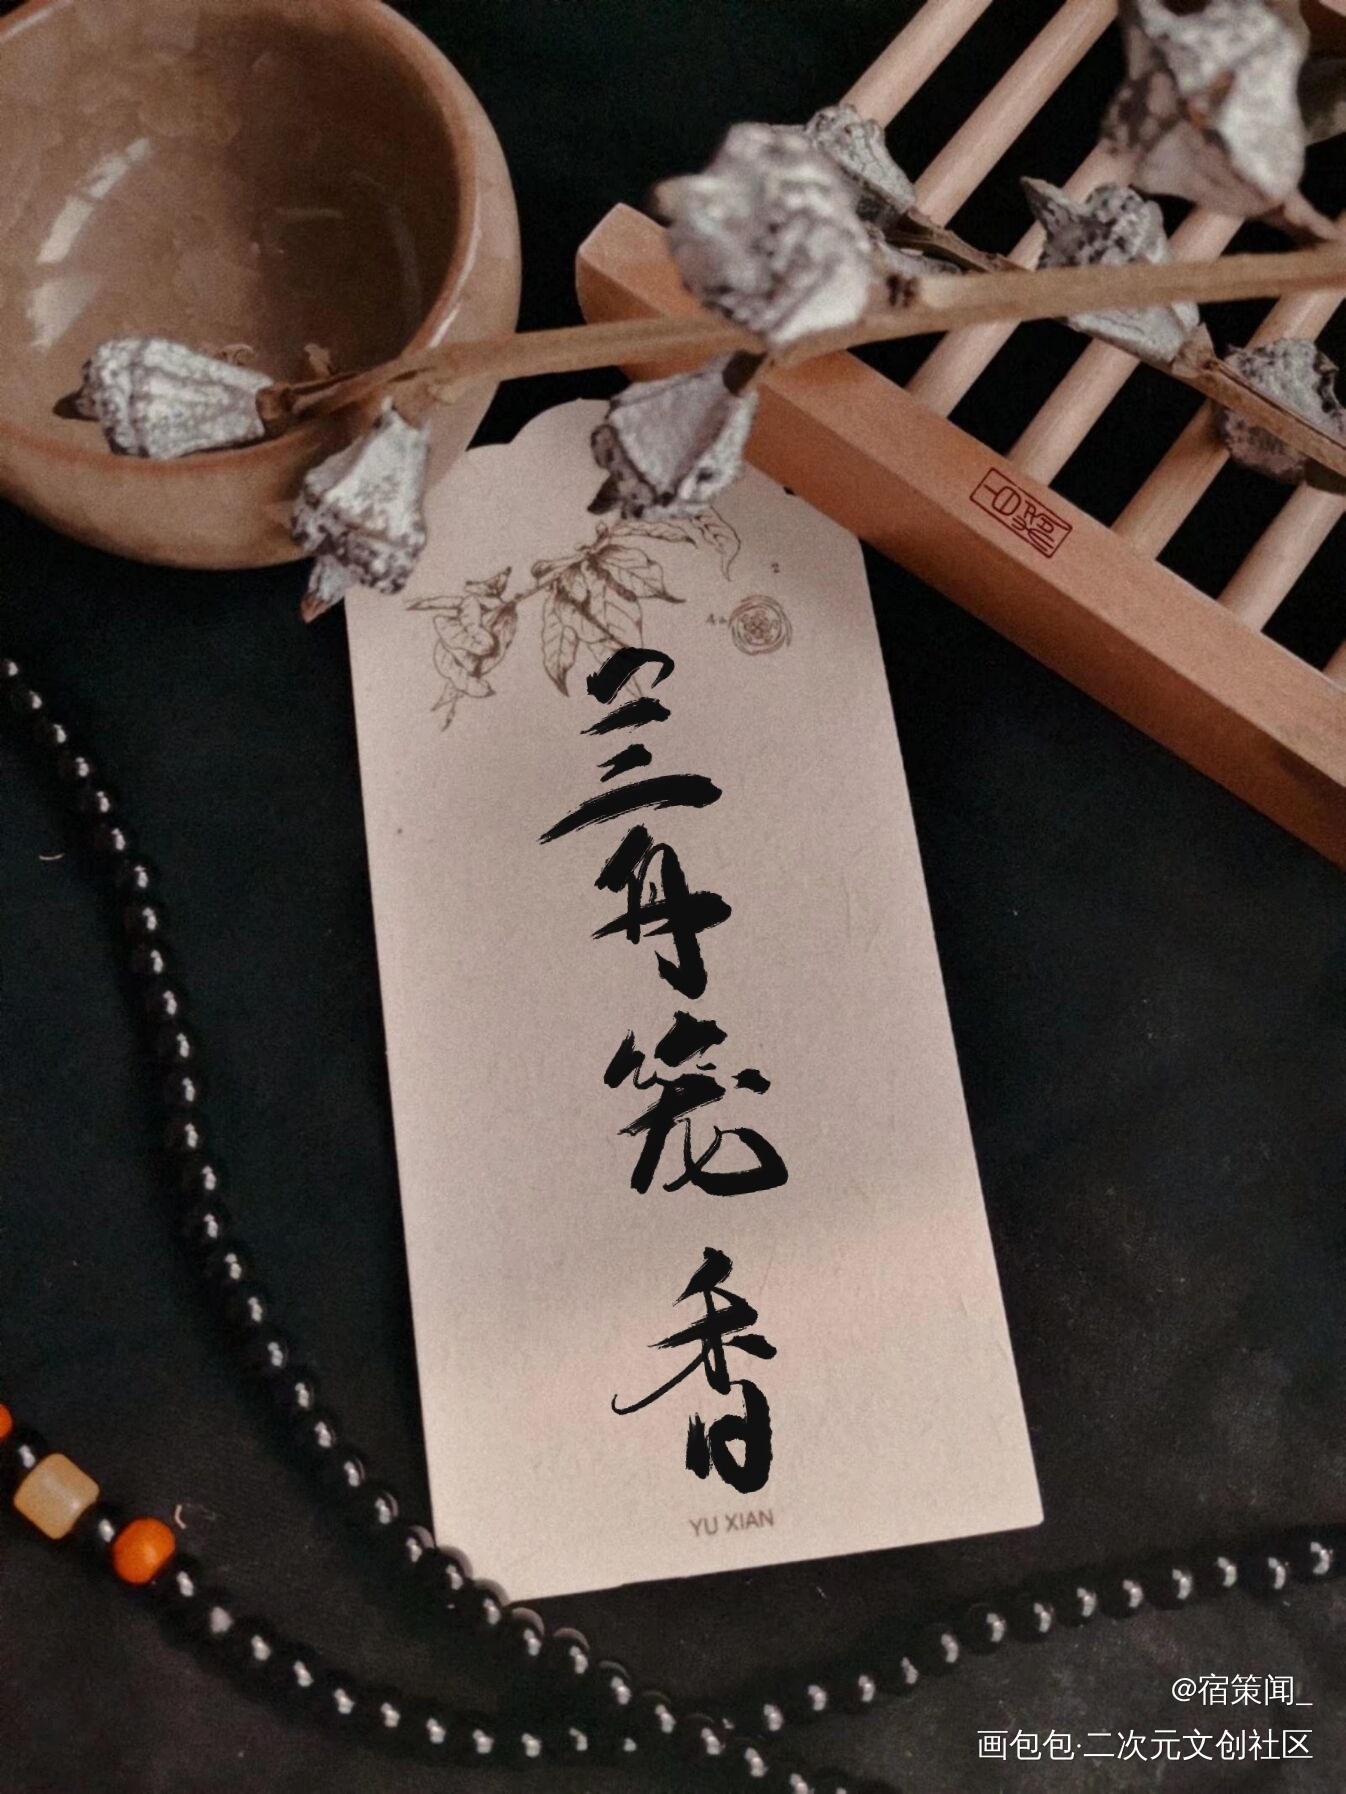 兰舟笼香
YU XIAN
@宿策闻_
画包包·二次元文创社区